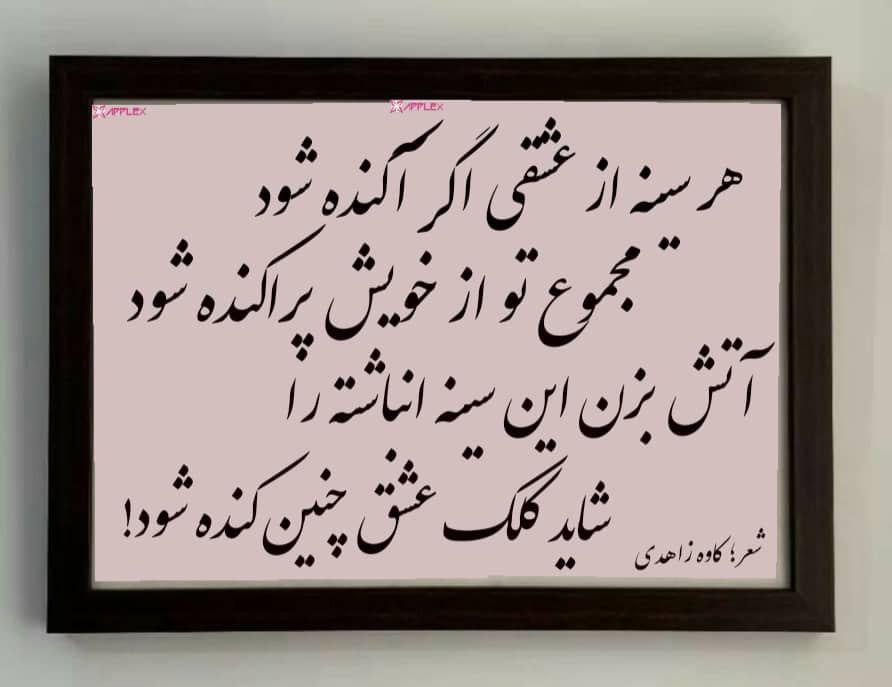 APPLEX APPLEX
هر سینه از عشقی اگر آکنده شود
مجموع تو از خویش پراکنده شود
آتش بزن این سینه انباشته را
شاید کلک عشق چنین کنده شود!
شعر؛ کاوه زاهدی